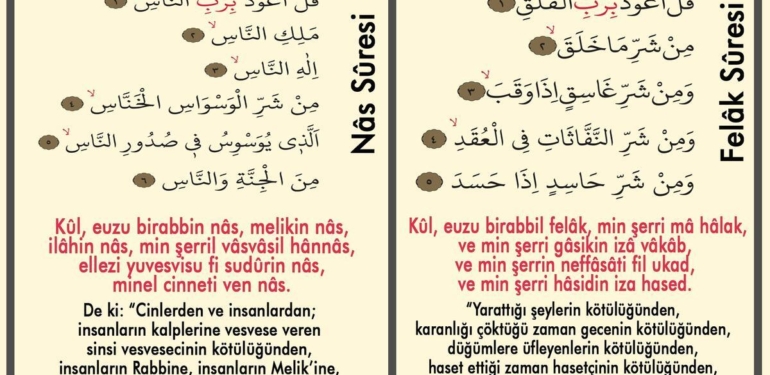 قُلْ اَعُوذُ بِرَبِّ النَّاسِ ١
مَلِكِ النَّاسِ ٢
اِلٰهِ النَّاسِ ٣
مِنْ شَرِّ الْوَسْوَاسِ الْخَنَّاسِ ٤
اَلَّذٖى يُوَسْوِسُ فٖى صُدُورِ النَّاسِ ٥
مِنَ الْجِنَّةِ وَالنَّاسِ ٦
Nâs Sûresi
Kûl, euzu birabbin nâs, melikin nâs,
ilâhin nâs, min şerril vâsvâsil hânnâs,
ellezi yuvesvisu fi sudûrin nâs,
minel cinneti ven nâs.
De ki: “Cinlerden ve insanlardan;
insanların kalplerine vesvese veren
sinsi vesvesecinin kötülüğünden,
insanların Rabbine, insanların Melik’ine,
قُلْ اَعُوذُ بِرَبِّ الْفَلَقِ ١
مِنْ شَرِّ مَا خَلَقَ ٢
وَمِنْ شَرِّ غَاسِقٍ اِذَا وَقَبَ ٣
وَمِنْ شَرِّ النَّفَّاثَاتِ فِى الْعُقَدِ ٤
وَمِنْ شَرِّ حَاسِدٍ اِذَا حَسَدَ ٥
Felâk Sûresi
Kûl, euzu birabbil felâk, min şerri mâ hâlak,
ve min şerri gâsikin izâ vâkâb,
ve min şerrin neffâsâti fil ukad,
ve min şerri hâsidin iza hased.
“Yarattığı şeylerin kötülüğünden,
karanlığı çöktüğü zaman gecenin kötülüğünden,
düğümlere üfleyenlerin kötülüğünden,
haset ettiği zaman hasetçinin kötülüğünden,